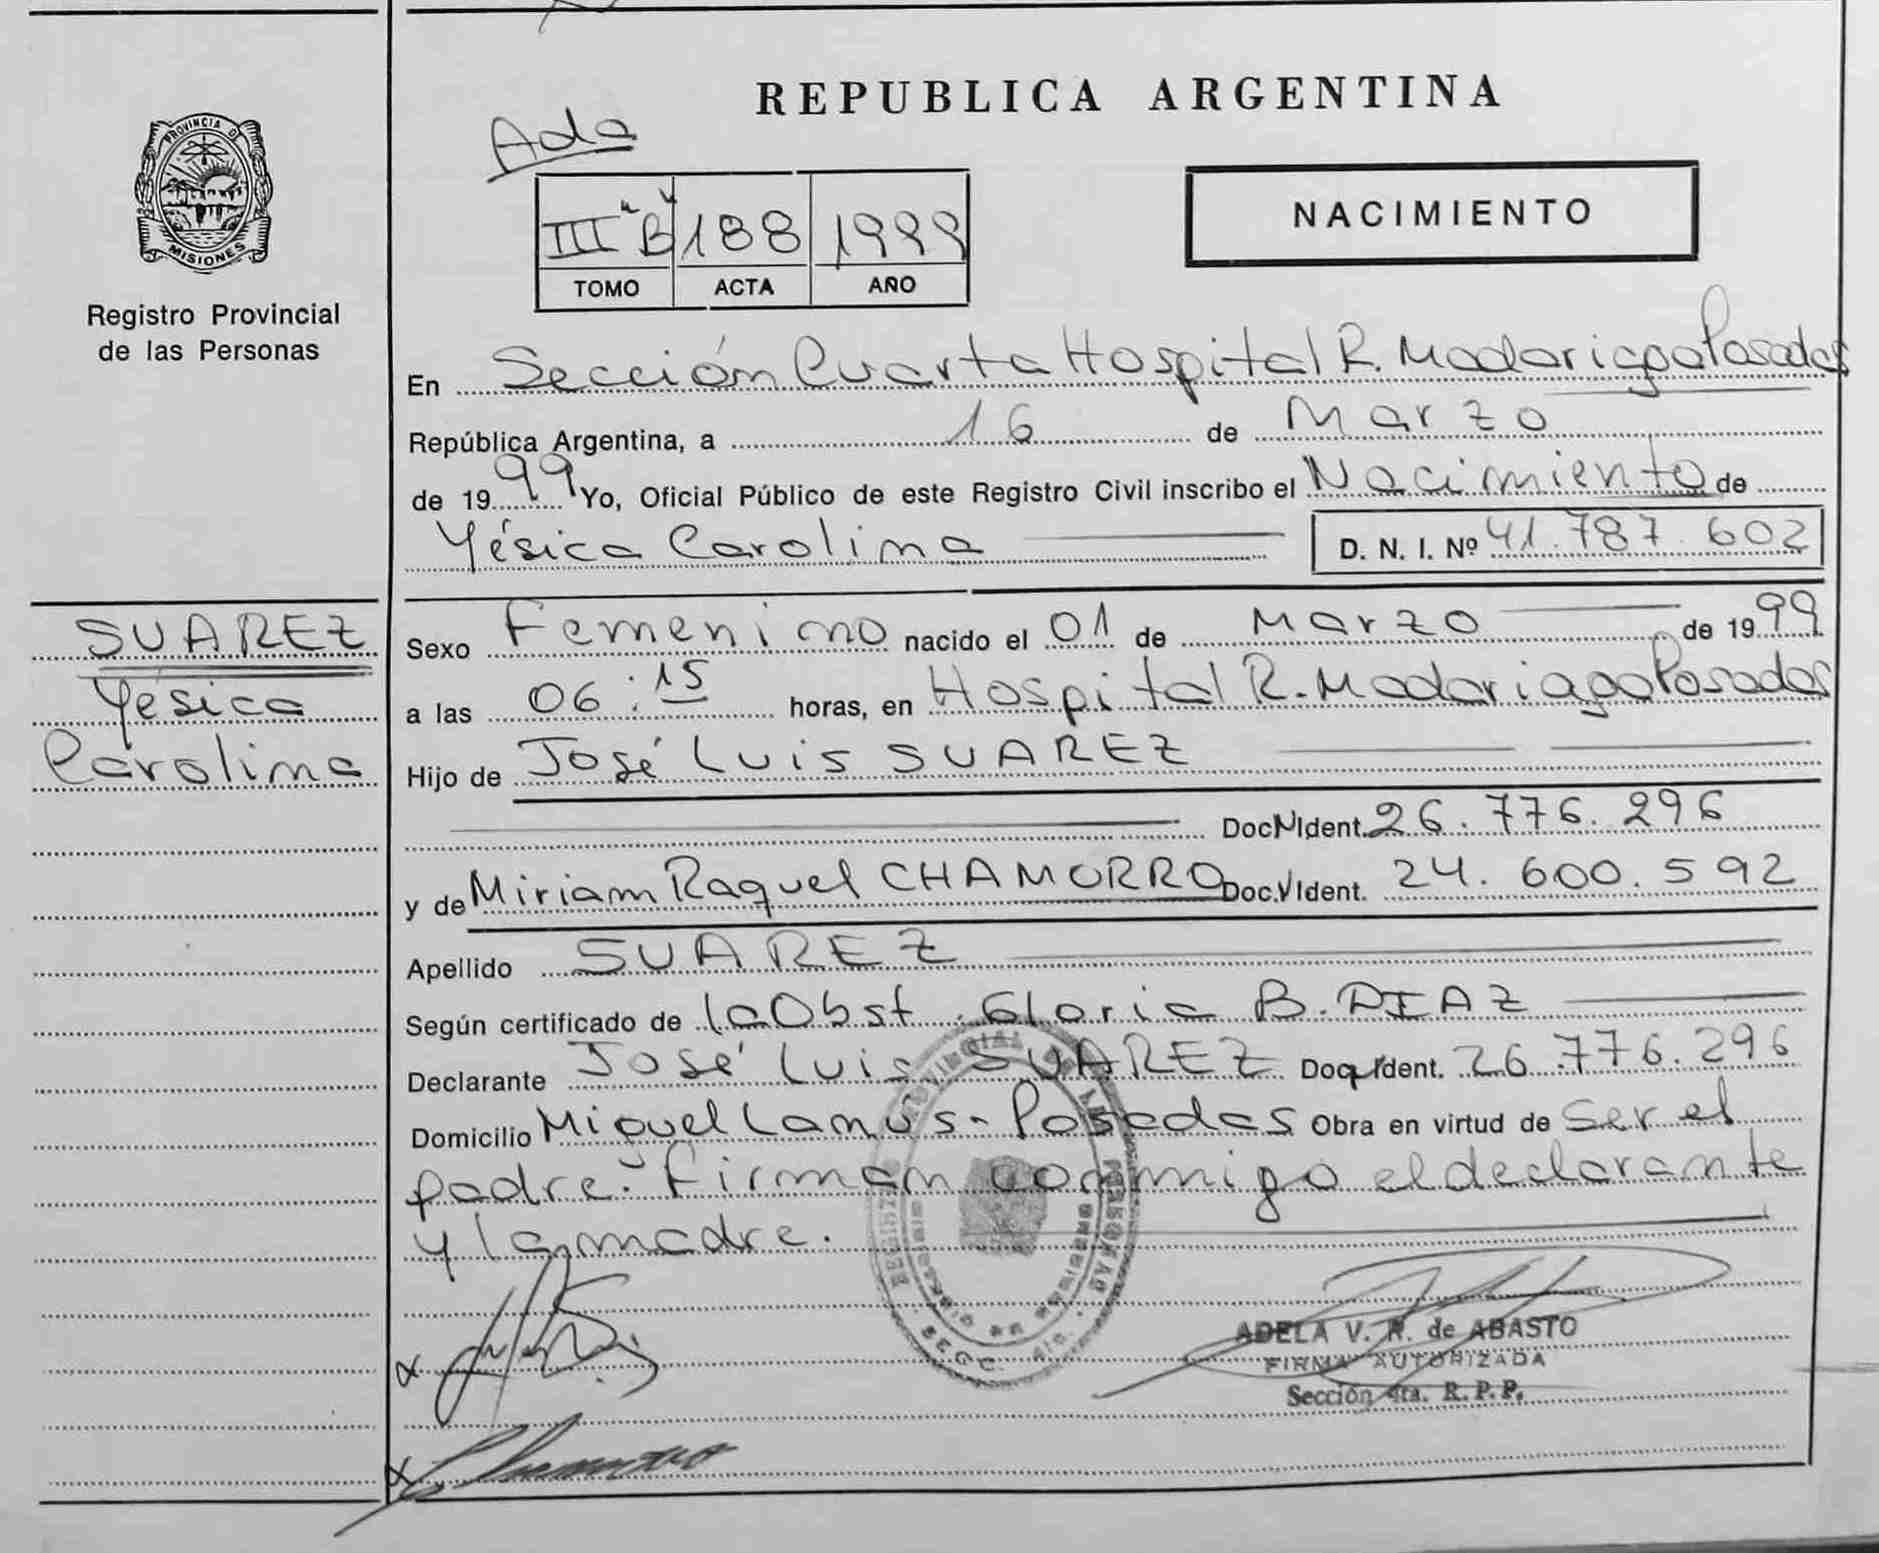 PROVINCIA D
MISIONES
Registro Provincial
de las Personas
SUAREZ
Yésica
Carolina
REPUBLICA ARGENTINA
Ada
NACIMIENTO
III "B" 188 1999
TOMO ACTA AÑO
En Sección Cuarta Hospital R. Madariaga Posadas
República Argentina, a 16 de Marzo
de 1999 Yo, Oficial Público de este Registro Civil inscribo el Nacimiento de
Yésica Carolina D. N. I. Nº 41.787.602
Sexo Femenino nacido el 01 de Marzo de 1999
a las 06:15 horas, en Hospital R. Madariaga Posadas
Hijo de José Luis SUAREZ
Doc. Ident. 26.776.296
y de Miriam Raquel CHAMORRO Doc. Ident. 24.600.592
Apellido SUAREZ
Según certificado de la Obst. Gloria B. DIAZ
Declarante José Luis SUAREZ Doc. Ident. 26.776.296
Domicilio Miguel Lanus - Posadas Obra en virtud de ser el
padre. Firman conmigo el declarante
y la madre.
ADELA V. R. de ABASTO
FIRMA AUTORIZADA
Sección 4ta. R. P. P.